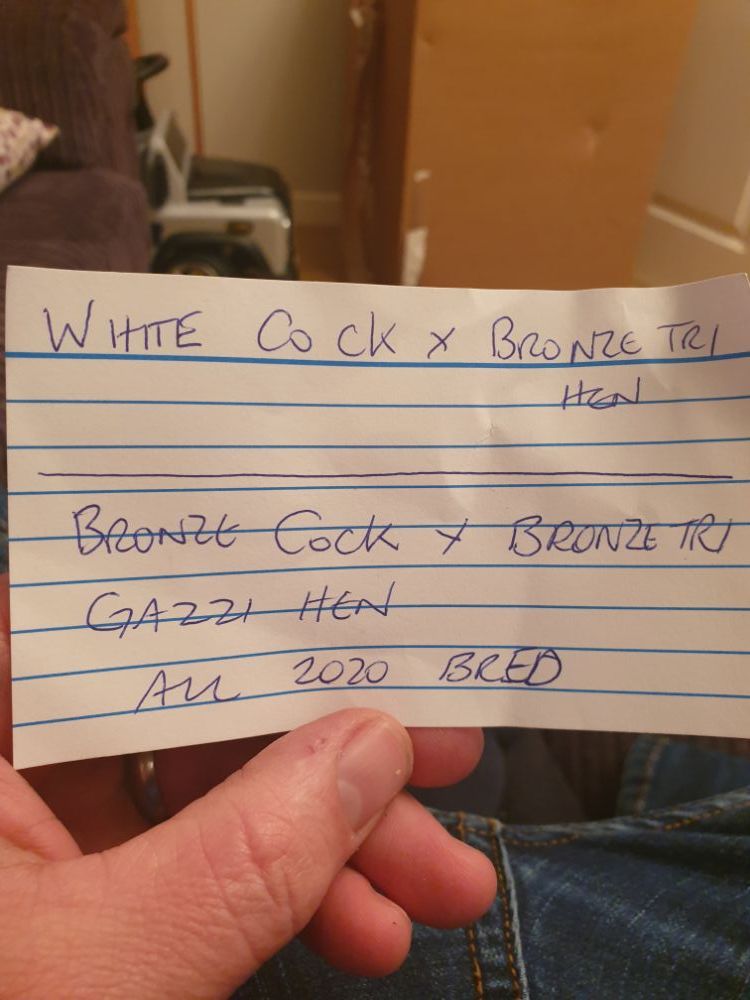 WHITE COCK x BRONZE TRI
HEN
BRONZE COCK x BRONZE TRI
GAZZI HEN
ALL 2020 BRED